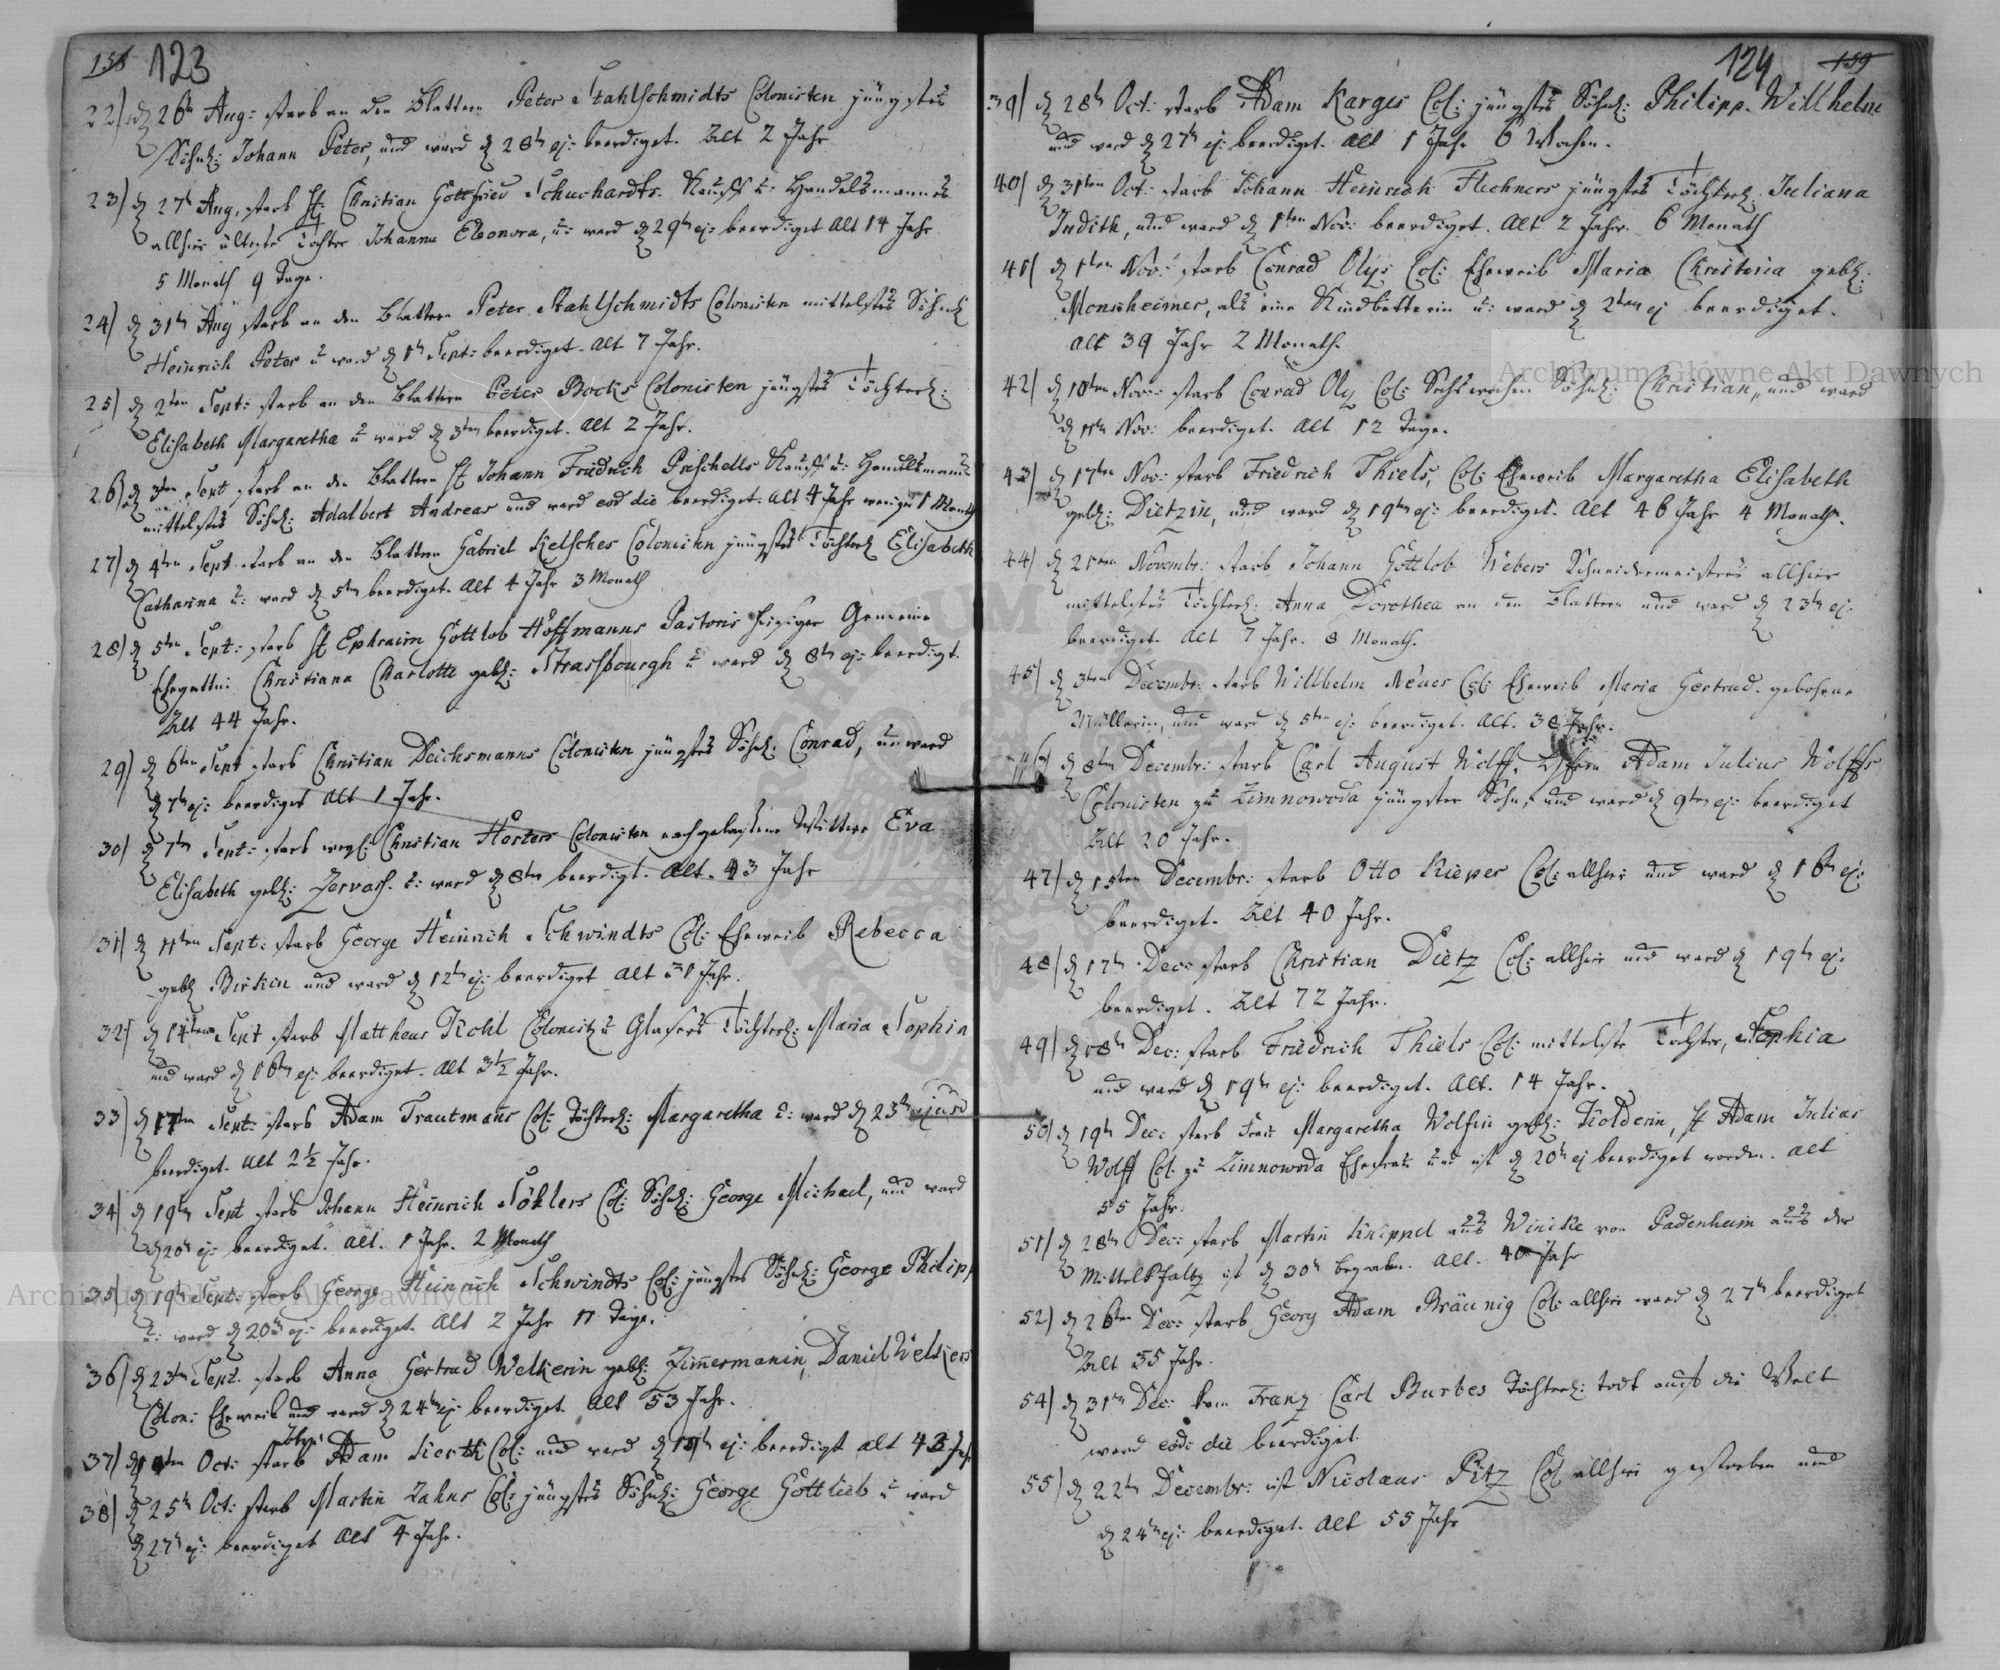 158 123
22) d 26ten Aug: starb an den Blattern Peter Stahlschmidts Colonisten jüngstes
Söhnl: Johann Peter, und ward d 28ten ej: beerdiget. Alt 2 Jahr
23) d 27ten Aug. starb H: Christian Gottfried Schuchardts. Kauff u: Handelsmannes
allhier älteste Tochter Johanna Eleonora, u: ward d 29ten ej: beerdiget Alt 14 Jahr
5 Monath 9 Tage.
24) d 31ten Aug starb an den Blattern Peter Stahlschmidts Colonisten mittelstes Söhnl
Heinrich Peter u ward d 1ten Sept: beerdiget. Alt 7 Jahr.
25) d 2ten Sept: starb an den Blattern Peter Bocks Colonisten jüngstes Töchterl:
Elisabeth Margaretha u ward d 3ten beerdiget. Alt 2 Jahr.
26) d 3ten Sept starb an den Blattern H Johann Friedrich Preschells Kauff u: Handelsmanns
mittelstes Söhnl: Adalbert Andreas und ward eod die beerdiget. Alt 4 Jahr weniger 1 Monath
27) d 4ten Sept starb an den Blattern Gabriel Kelsches Colonisten jüngstes Töchterl Elisabeth
Catharina u: ward d 5ten beerdiget. Alt 4 Jahr 3 Monath
28) d 5ten Sept: starb H Ephraim Gottlob Hoffmanns Pastoris hiesiger Gemeine
Ehegattin: Christiana Charlotte gebl: Strassbourgh u ward d 8ten ej: beerdigt.
Alt 44 Jahr.
29) d 6ten Sept starb Christian Deichsmanns Colonisten jüngstes Söhnl: Conrad, u ward
d 7ten ej: beerdiget Alt 1 Jahr.
30) d 7ten Sept: starb Christian Horters Colonisten nachgelassene Wittwe Eva
Elisabeth gebl: Zervass. u: ward d 8ten beerdigt. Alt. 43 Jahr
31) d 11ten Sept: starb George Heinrich Schwindts Col: Eheweib Rebecca
gebl Birkin und ward d 12ten ej: beerdiget Alt 31 Jahr.
32) d 14ten Sept starb Mattheus Kohl Colonist u Glasers Töchterl: Maria Sophia
und ward d 16ten ej: beerdiget. Alt 3½ Jahr.
33) d 17ten Sept: starb Adam Trautmans Col: Töchterl: Margaretha u: ward d 23ten ejusd
beerdiget. Alt 2½ Jahr.
34) d 19ten Sept starb Johann Heinrich Töhlers Col: Söhnl: George Michael, und ward
d 20ten ej: beerdiget. Alt. 1 Jahr. 2 Monath
35) d 19ten Sept: starb George Heinrich Schwindts Col: jüngstes Söhnl: George Philipp
u: ward d 20ten ej: beerdiget. Alt 2 Jahr 11 Tage.
36) d 23ten Sept. starb Anna Gertrud Welkerin gebl: Zimmermanin, Daniel Welkers
Colon: Eheweib und ward d 24ten ej: beerdiget. Alt 53 Jahr.
37) d ten Oct: starb Adam Col: und ward d ten ej: beerdigt alt 43 Jahr
38) d 25ten Oct: starb Martin Zahns Col: jüngstes Söhnl: George Gottlieb u ward
d 27ten ej: beerdiget Alt 4 Jahr.
124 159
39) d 28ten Oct: starb Adam Karges Col: jüngstes Söhnl: Philipp. Willhelm
und ward d 27ten ej: beerdiget. Alt 1 Jahr 6 Wochen.
40) d 31ten Oct: starb Johann Heinrich Flechners jüngstes Töchterl: Juliana
Judith, und ward d 1ten Nov: beerdiget. Alt 2 Jahr. 6 Monath
41) d 1ten Nov: starb Conrad Olys Col: Eheweib Maria Christina gebl:
Monsheimer, als eine Kindbetterin u: ward d 2ten ej beerdiget.
Alt 39 Jahr 2 Monath.
42) d 10ten Nov: starb Conrad Oly Col: Söhnl: Christian, und ward
d 11ten Nov: beerdiget. Alt 12 Tage.
43) d 17ten Nov: starb Friedrich Thiels, Col: Eheweib Margaretha Elisabeth
gebl: Dietzin, und ward d 19ten ej: beerdiget. Alt 46 Jahr 4 Monath.
44) d 21ten Novembr: starb Johann Gottlob Webers Schneidermeisters allhier
mittelstes Töchterl: Anna Dorothea an den Blattern und ward d 23ten ej:
beerdiget. Alt 7 Jahr. 8 Monath.
45) d 3ten Decembr: starb Willhelm Neues Col: Eheweib Maria Gertrud. gebohrne
Müllerin, und ward d 5ten ej: beerdiget. Alt. 38 Jahr.
46) d 8ten Decembr: starb Carl August Wolff, Adam Julius Wolffs
Colonisten zu Zimnowoda jüngster Sohn, und ward d 9ten ej: beerdiget
Alt 20 Jahr.
47) d 15ten Decembr: starb Otto Kieper Col: allhier und ward d 16ten ej:
beerdiget. Alt 40 Jahr.
48) d 17ten Dec: starb Christian Dietz Col: allhier und ward d 19ten ej:
beerdiget. Alt 72 Jahr.
49) d 18ten Dec: starb Friedrich Thiels Col: mittelste Tochter, Sophia
und ward d 19ten ej: beerdiget. Alt. 14 Jahr.
50) d 19ten Dec: starb Frau Margaretha Wolfin gebl: Kolderin, H Adam Julius
Wolff Col: zu Zimnowoda Ehefrau und ist d 20ten ej beerdiget worden. Alt
55 Jahr.
51) d 28ten Dec: starb Martin Knippel aus Winike von Padenheim aus der
Mittel Pfaltz ist d 30ten begraben. Alt. 40 Jahr
52) d 26ten Dec: starb Georg Adam Bräunig Col: allhier ward d 27ten beerdiget
Alt 35 Jahr.
54) d 31ten Dec: kam Franz Carl Burbes Töchterl: todt auf die Welt
ward eod: die beerdiget.
55) d 22ten Decembr: ist Nicolaus Pitz Col allhier gestorben und
d 24ten ej: beerdiget. Alt 55 Jahr
Archiwum Główne Akt Dawnych
Archiwum Główne Akt Dawnych